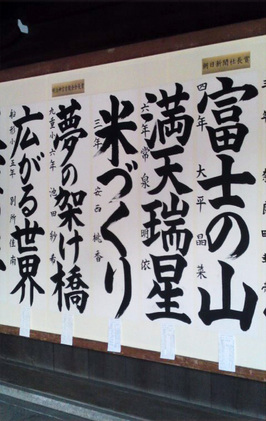 朝日新聞社長賞
富士の山
四年 大平晶菜
満天瑞星
六年 常泉明
米づくり
三年 安西桃香
夢の架け橋
九重小六年 池田紗希
広がる世界
船形小五年 別所佳南